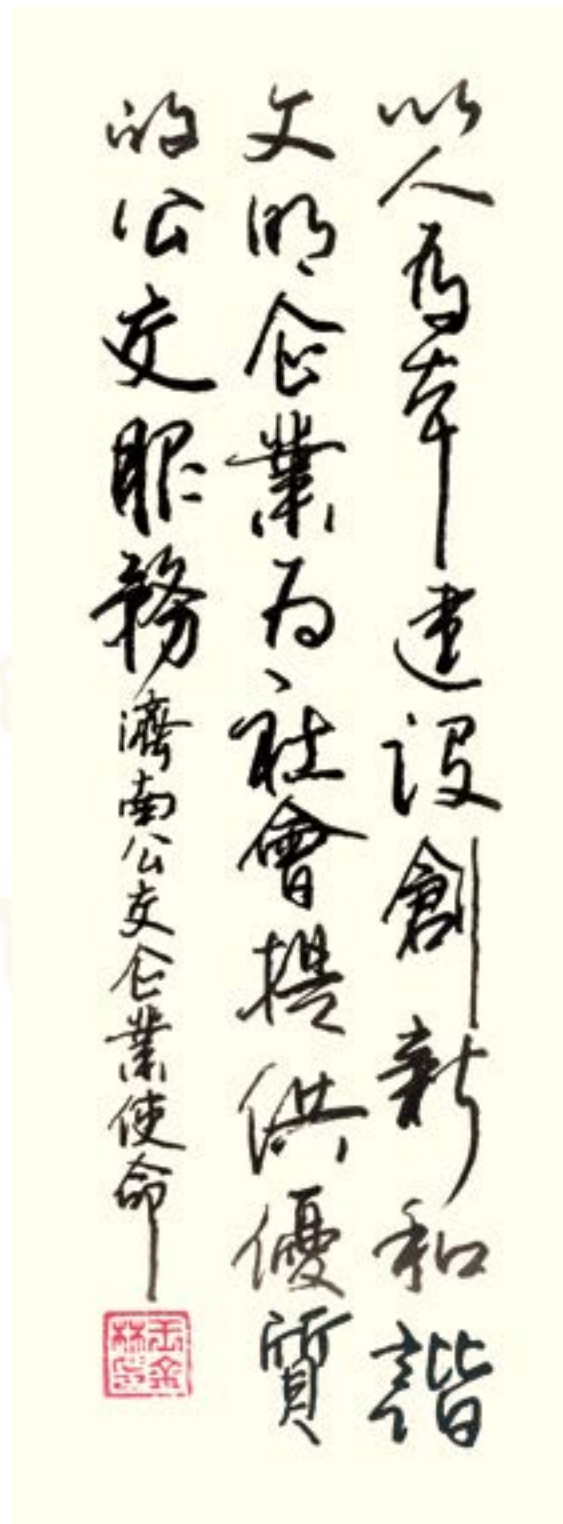 以人為本建設創新和諧
文明企業为社會提供優質
的公交服務濟南公交企業使命